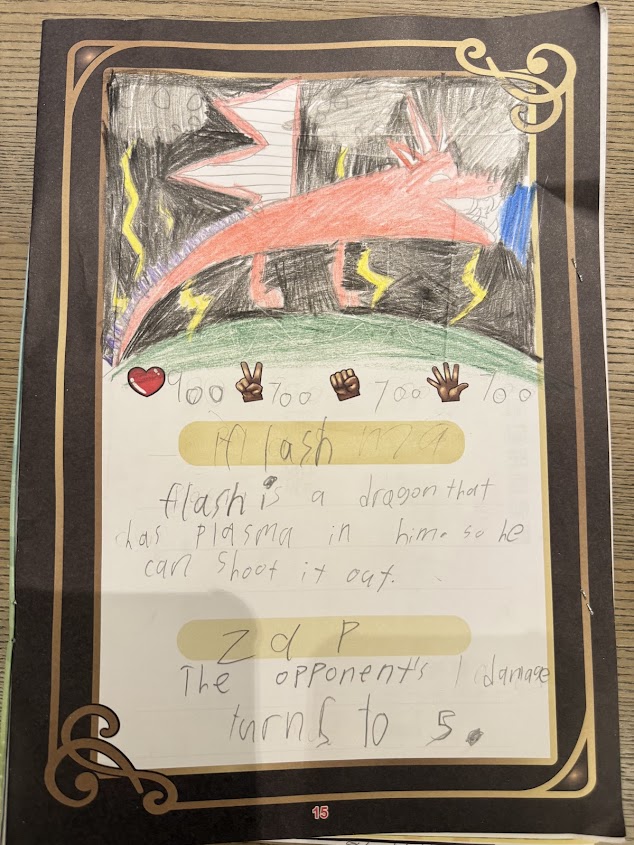 900 700 700 700
flash
flash is a dragon that
has plasma in him. so he
can shoot it out.
zap
The opponent's 1 damage
turns to 5.
15